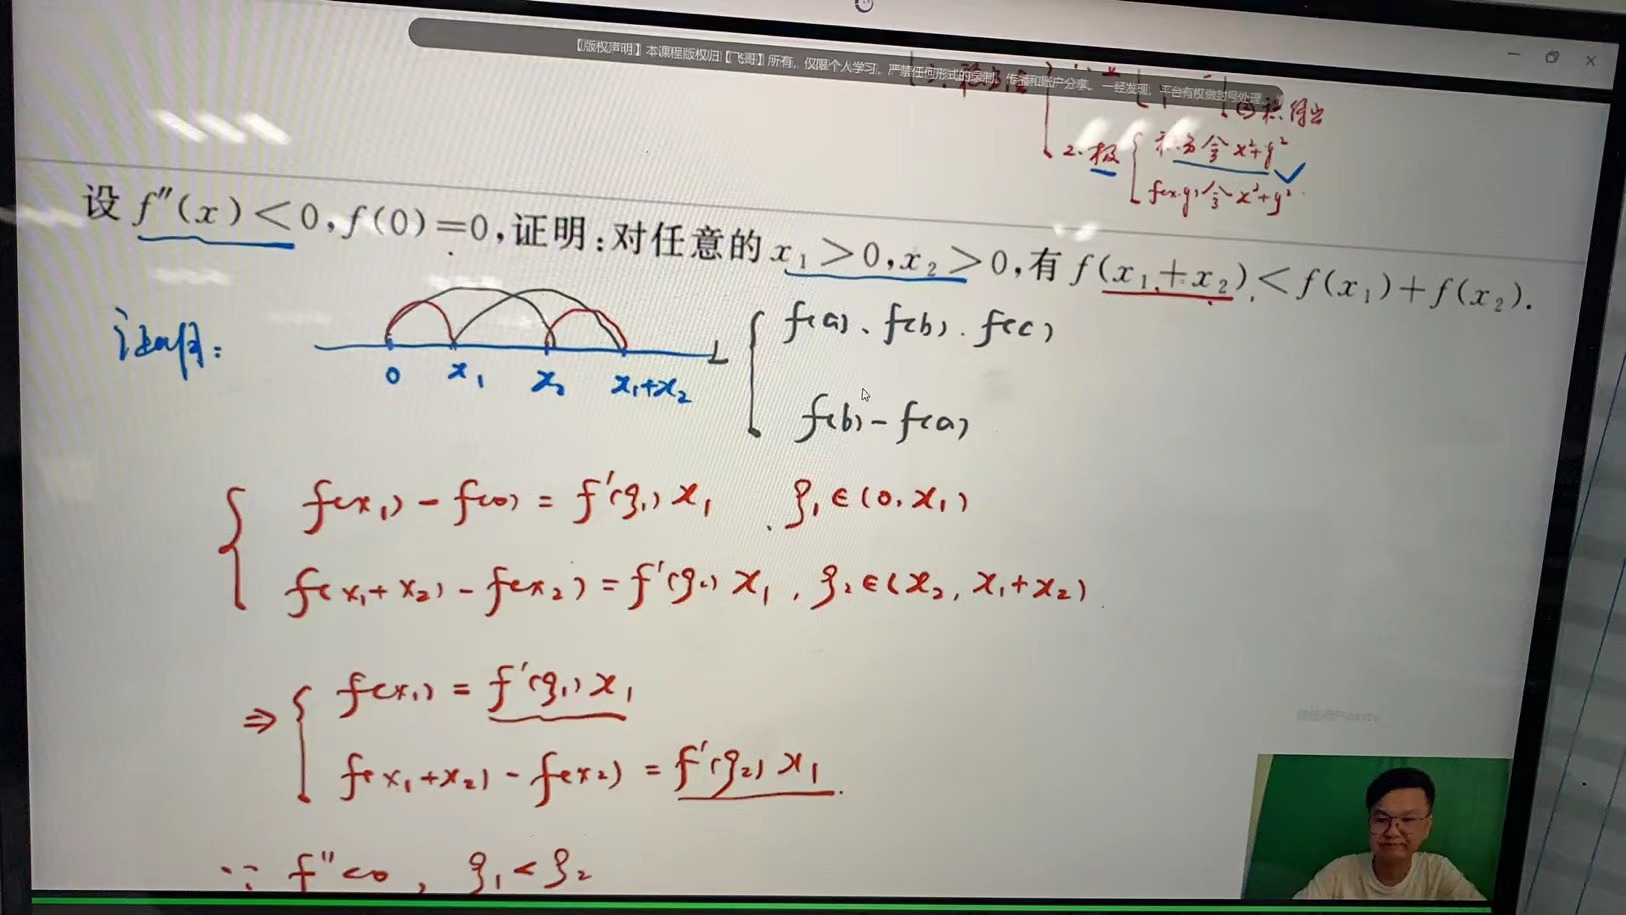 【版权声明】本课程版权归【飞哥】所有，仅限个人学习，严禁任何形式的录制、传播和账户分享。一经发现，平台有权做封号处理
2. 极 { 积分含 x²+y²
f(x,y) 含 x²+y²
设 f″(x)<0, f(0)=0, 证明:对任意的 x₁>0, x₂>0, 有 f(x₁+x₂)<f(x₁)+f(x₂).
证明:
0 x₁ x₂ x₁+x₂
{ f(a)、f(b). f(c)
f(b) - f(a)
{ f(x₁) - f(0) = f′(ξ₁) x₁ , ξ₁ ∈ (0, x₁)
f(x₁+x₂) - f(x₂) = f′(ξ₂) x₁ , ξ₂ ∈ (x₂, x₁+x₂)
⇒ { f(x₁) = f′(ξ₁) x₁
f(x₁+x₂) - f(x₂) = f′(ξ₂) x₁.
∵ f″<0 , ξ₁ < ξ₂